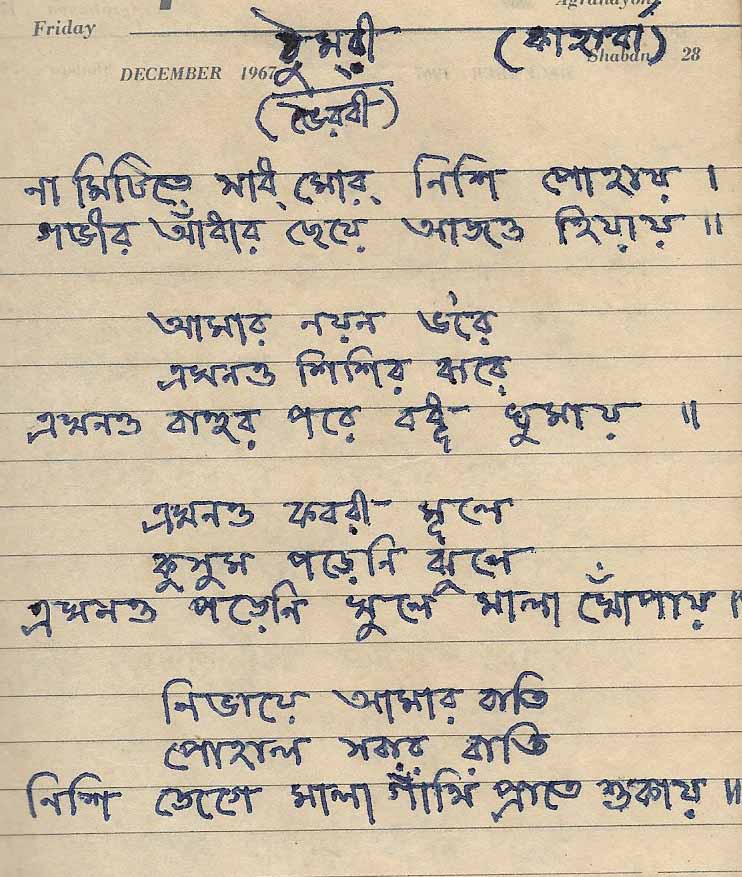 Agrahayon
Friday
ঠুমরী (কাহারবা)
Shaban 28
DECEMBER 1967
(ভৈরবী)
না মিটিতে সাধ মোর নিশি পোহায় ।
গভীর আঁধার ছেয়ে আজও হিয়ায় ॥
আমার নয়ন ভ'রে
এখনও শিশির ঝরে
এখনও বাহুর পরে বঁধু ঘুমায় ॥
এখনও কবরী মূলে
কুসুম পড়েনি ঝুলে
এখনও পড়েনি খুলে মালা খোঁপায় ॥
নিভায়ে আমার বাতি
পোহাল সবার রাতি
নিশি জেগে মালা গাঁথি প্রাতে শুকায় ॥